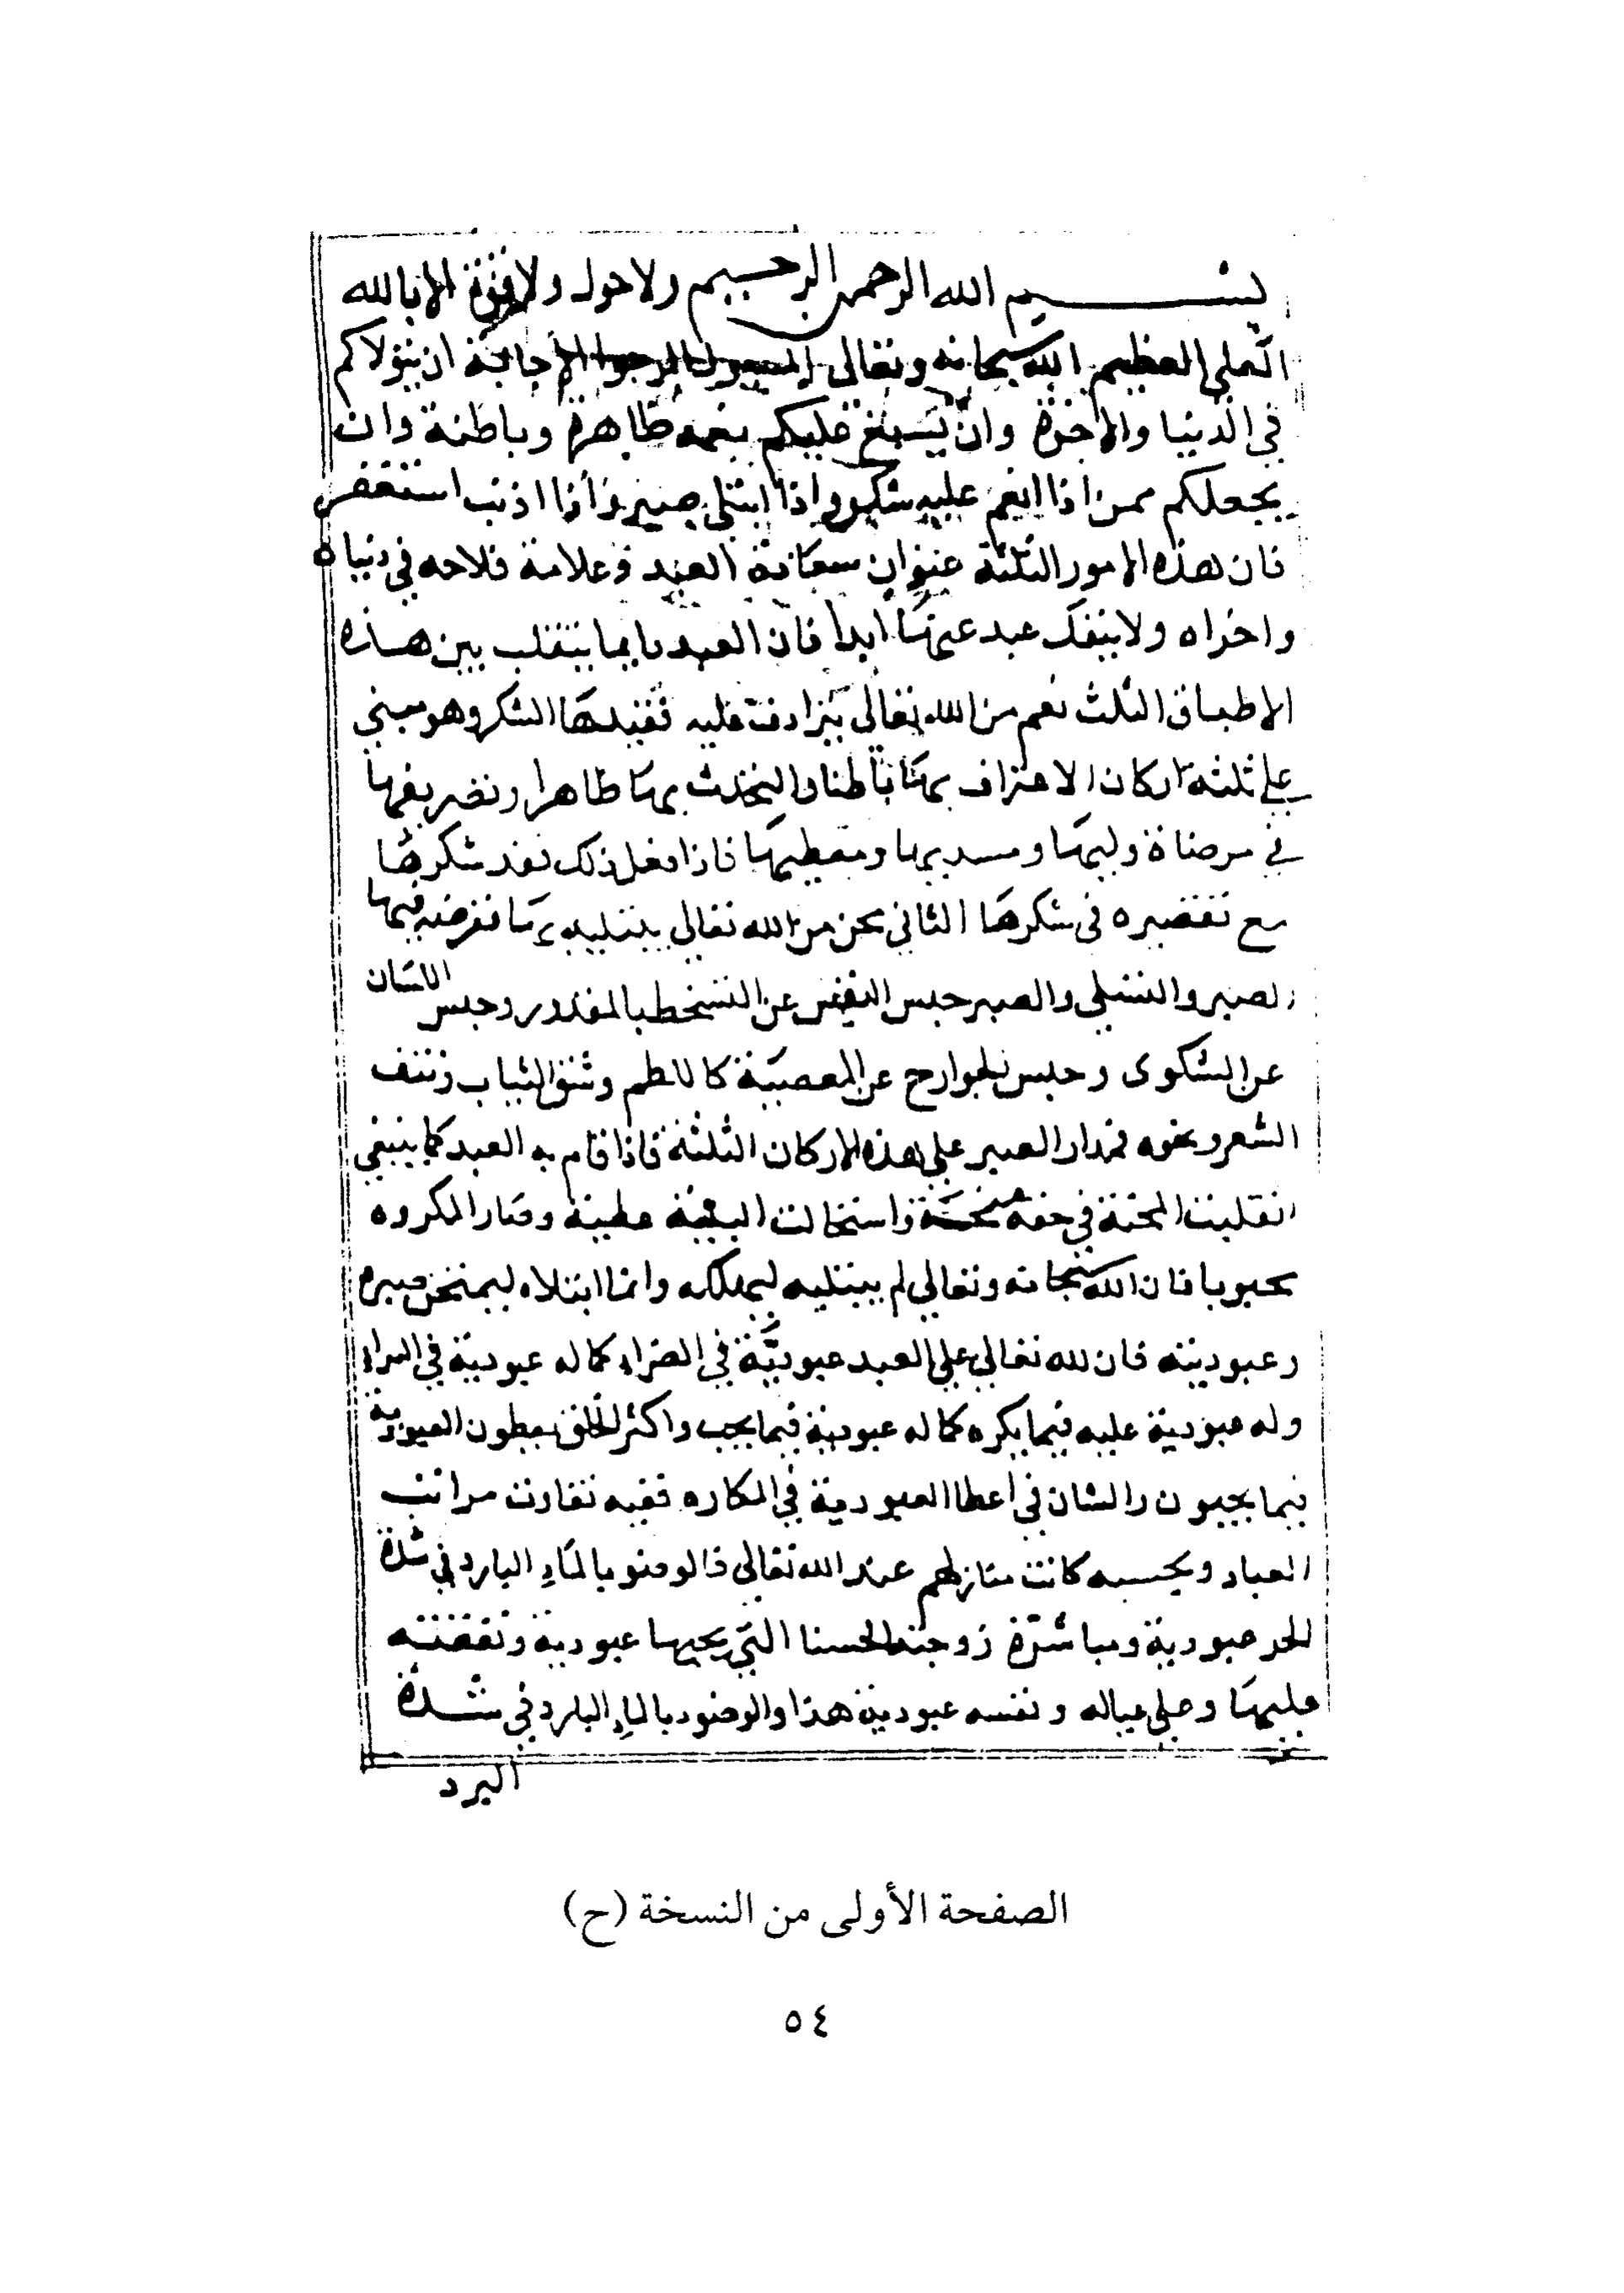 بسم الله الرحمن الرحيم ولا حول ولا قوة الا بالله
العلي العظيم الله سبحانه وتعالى المسول المرجو الاجابة ان يتولاكم
في الدنيا والاخرة وان يسبغ عليكم نعمه ظاهرة وباطنة وان
يجعلكم ممن اذا انعم عليه شكر واذا ابتلى صبر واذا اذنب استغفر
فان هذه الامور الثلثة عنوان سعادة العبد وعلامة فلاحه في دنياه
واخراه ولا ينفك عبد عنها ابدا فان العبد دايما يتقلب بين هذه
الاطباق الثلث نعم من الله تعالى يترادف عليه تقيدها الشكر وهو مبني
على ثلثة اركان الاعتراف بها باطنا والتحدث بها ظاهرا وتصريفها
في مرضاة وليها ومسديها ومعطيها فاذا فعل ذلك فقد شكرها
مع تقصيره في شكرها الثاني محن من الله تعالى يبتليه بها ففرضه فيها
الصبر والتسلي والصبر حبس النفس عن التسخط بالمقدور وحبس اللسان
عن الشكوى وحبس الجوارح عن المعصية كاللطم وشق الثياب ونتف
الشعر ونحوه فمدار الصبر على هذه الاركان الثلثة فاذا قام به العبد كما ينبغي
انقلبت المحنة في حقه منحة واستحالت البلية عطية وصار المكروه
محبوبا فان الله سبحانه وتعالى لم يبتليه ليهلكه وانما ابتلاه ليمتحن صبره
وعبوديته فان لله تعالى على العبد عبودية في الضراء كما له عبودية في السراء
وله عبودية عليه فيما يكره كما له عبودية فيما يحب واكثر الخلق يعطون العبودية
فيما يحبون والشان في اعطا العبودية في المكاره ففيه تفاوت مراتب
العباد وبحسبه كانت منازلهم عند الله تعالى فالوضو بالماء البارد في شدة
الحر عبودية ومباشرة زوجته الحسنا التي يحبها عبودية ونفقته
عليها وعلى عياله ونفسه عبودية هذا والوضوء بالماء البارد في شدة
البرد
الصفحة الأولى من النسخة (ح)
٥٤